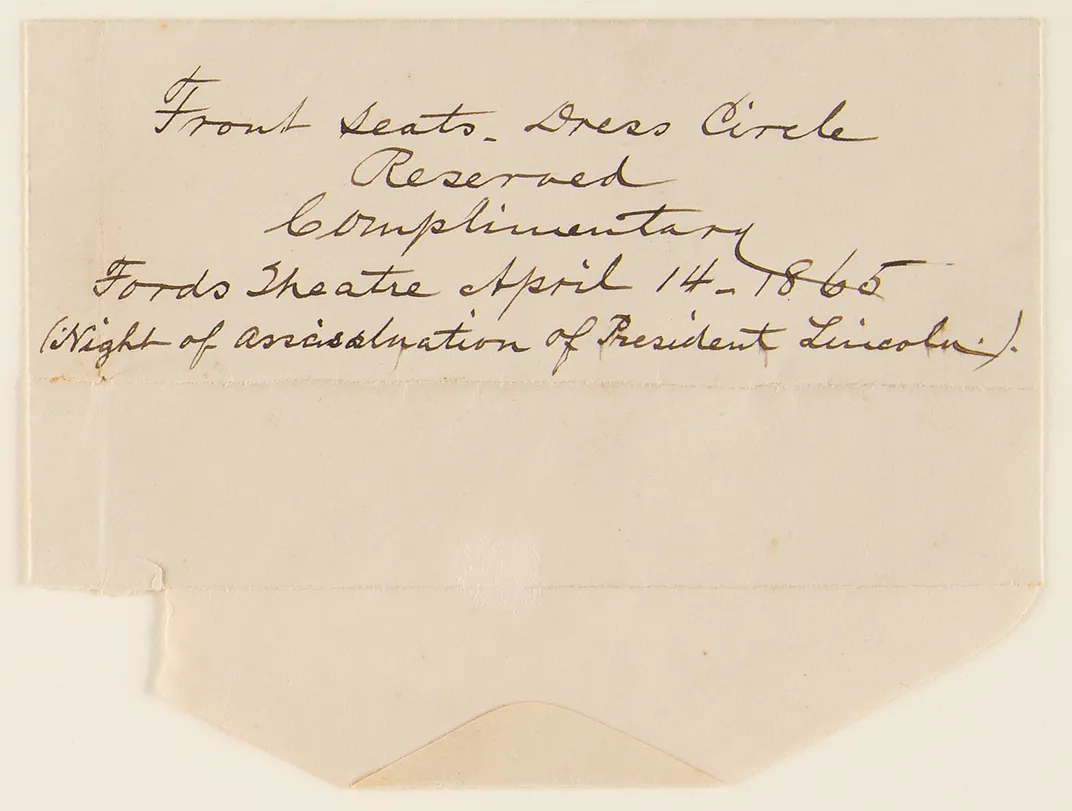 Front seats - Dress Circle
Reserved
Complimentary
Fords Theatre April 14 - 1865
(Night of assissaluation of President Lincoln.).